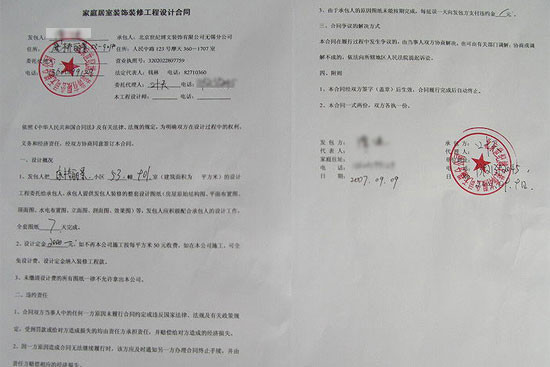 家庭居室装饰装修工程设计合同
发包人:
承包人:北京世纪博文装饰有限公司无锡分公司
住所:
住所:人民中路 123 号摩天 360—1707 室
营业执照号:3202022807759
电话:
法定代表人:钱林 电话:82710360
委托代理人: 电话:
本工程设计师: 电话:
依照《中华人民共和国合同法》及有关法律、法规的规定,为明确双方在设计过程中的权利、
义务和经济责任,经双方协商同意签订本合同。
一、设计概况
1、发包人把 小区 33 幢 901 室(建筑面积为 平方米)的设计
工程委托给承包人,承包人提供发包人装修的整套设计图纸(房屋原始结构图、平面布置图、
顶面图、水电布置图、立面图、剖面图、效果图)等,发包人应积极配合承包人的设计工作,
全套图纸 7 天完成。
2、设计定金 2000 元 如不再本公司施工按每平方米 50 元收费,如在本公司施工,可全
免设计费,设计定金纳入装修工程款。
3、未缴清设计费的所有图纸一律不允许拿出本公司。
二、违约责任
1、合同双方当事人中的任何一方原因未履行合同约定或违反国家法律、法规及有关政策规
定,受到罚款或给对方造成损失的均由责任方承担责任,并赔偿给对方造成的经济损失。
2、因一方原因造成合同无法继续履行时,该方应及时通知另一方办理合同终止手续,并由
责任方赔偿相应的经济损失。
3、由于承包人的原因图纸未能按期完成,每延误一天向发包方支付违约金
三、合同争议的解决方式
本合同在履行过程中发生的争议,由当事人双方协商解决,也可由有关部门调解,协商或调
解不成的,依法向所辖地区人民法院提起诉讼。
四、附则
1、本合同经双方签字(盖章)后生效,合同履行完后自动终止。
2、本合同一式两份,双方各执一份。
发 包 方:
代 表 人:
家庭住址:
电 话:
日 期:2007.09.09
承 包 方:
代 表 人:
电 话:
日 期: